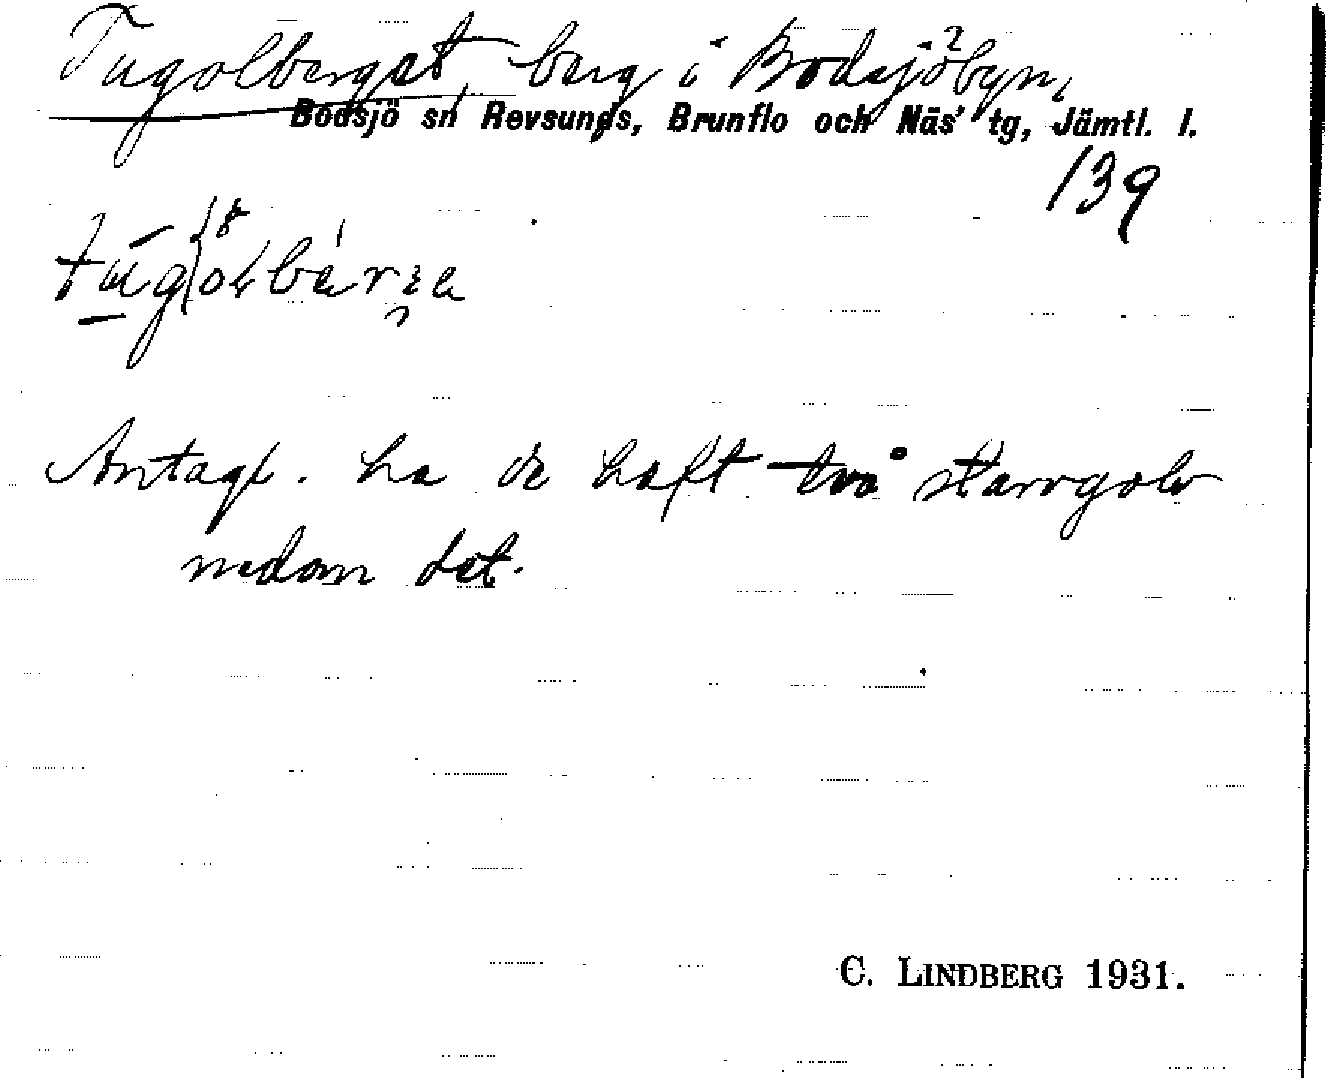 Tugolberget, berg i Bodsjöbyn,
Bodsjö sn Revsunds, Brunflo och Näs' tg, Jämtl. l.
139
Antagl. ha de haft två starrgolv
nedom det.
C. LINDBERG 1931.